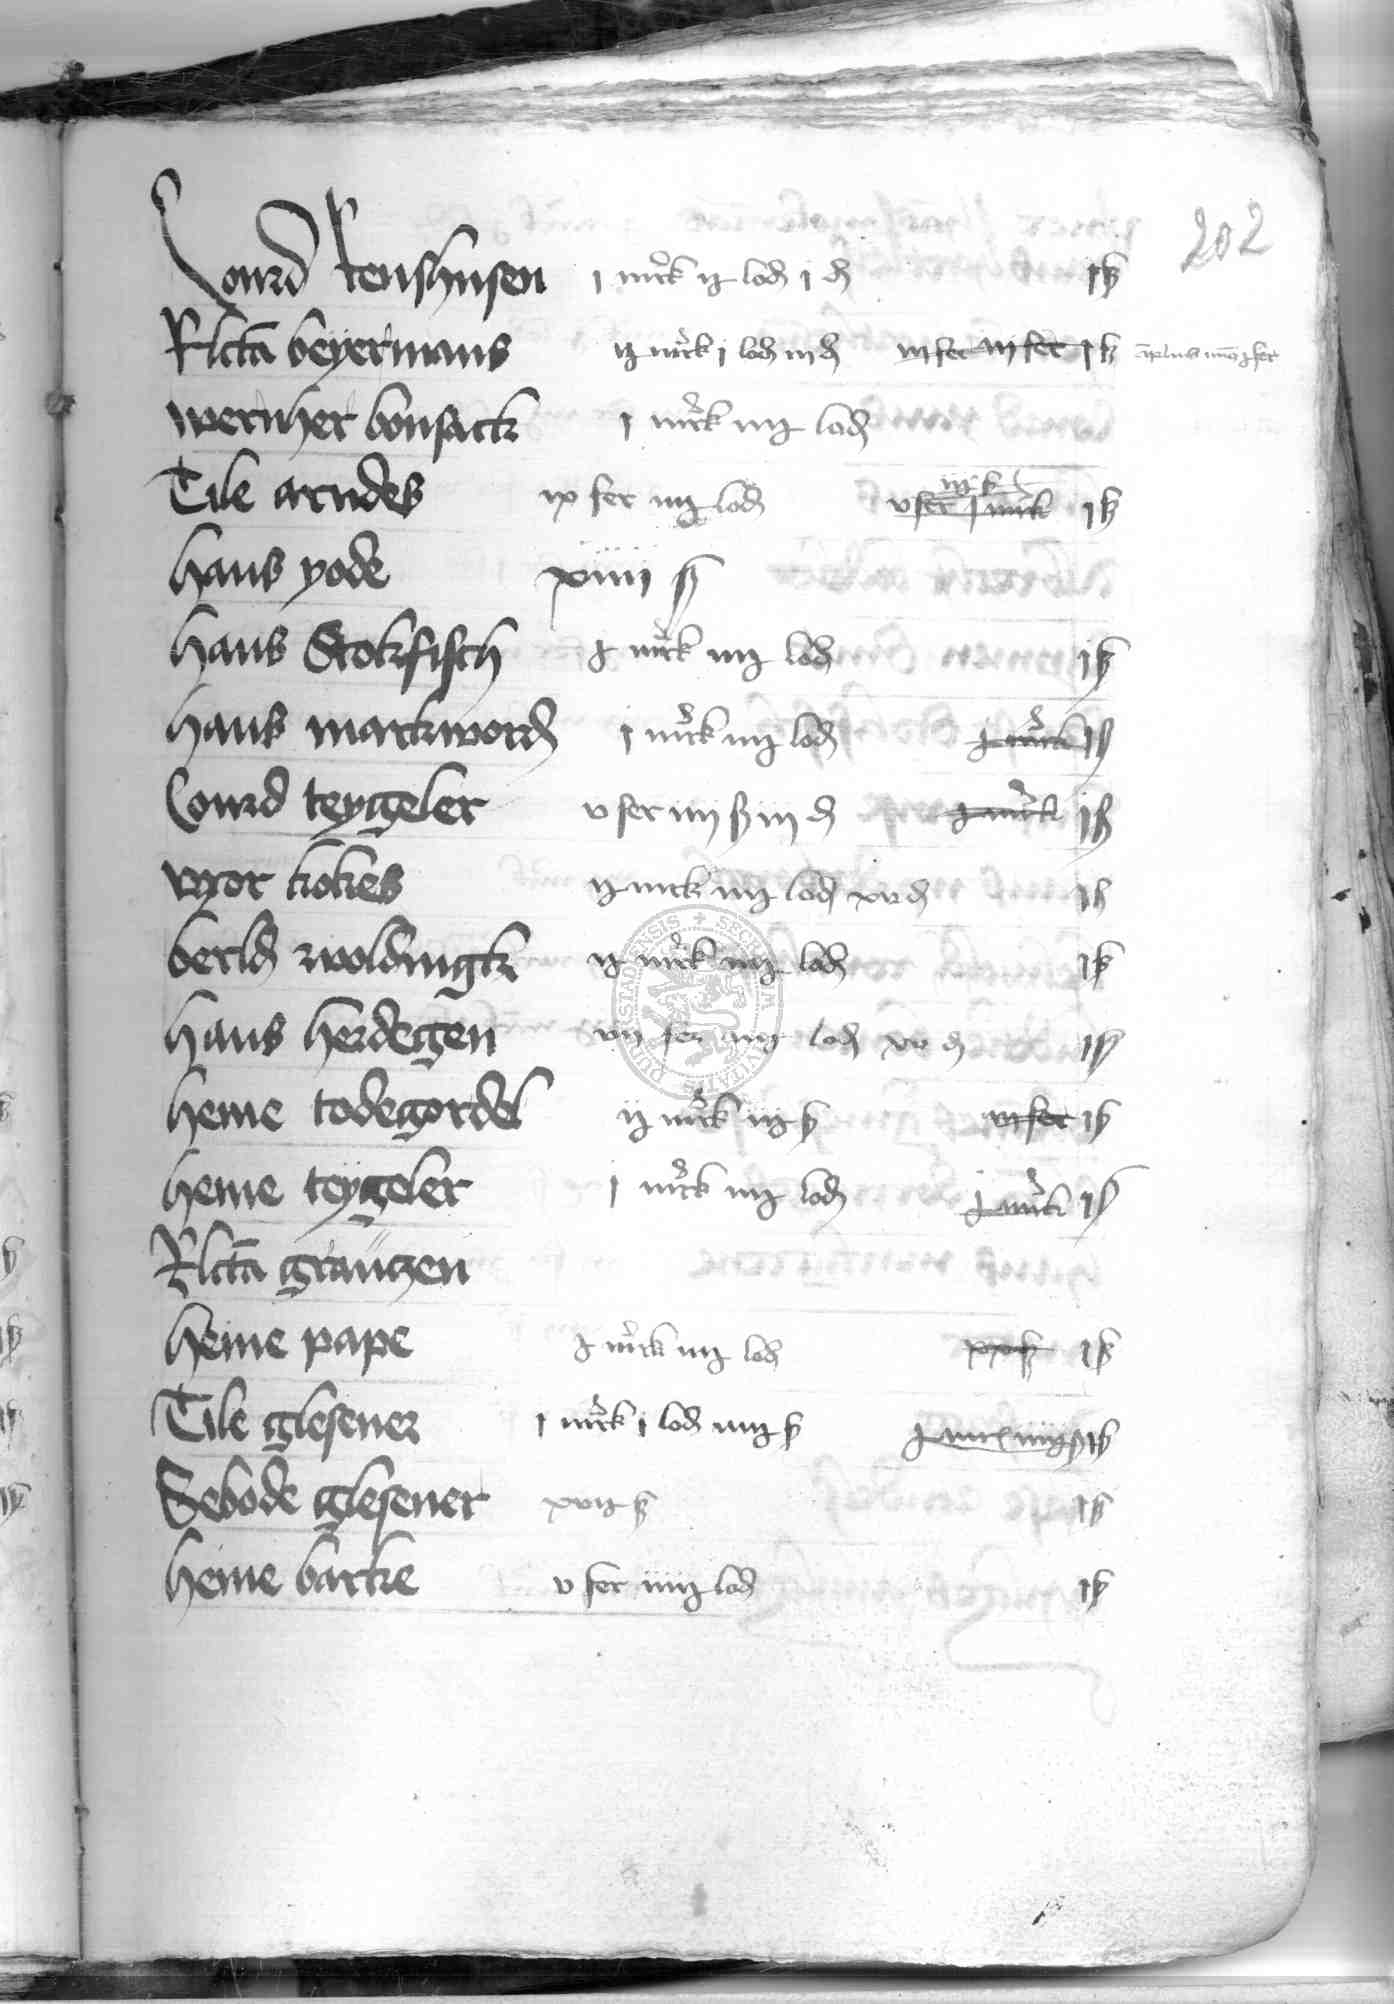 202
Curd Renshusen j mrck ij lod j d j ß
Rlcta beyermans ij mrck j lod iij d iij fer iij fer j ß
wernher bonsack j mrck iiij lod
Tile arndes ix fer iiij lod v fer j mrck j ß
hans yode xiiii ß
hans Stokfisch j mrck iiij lod j ß
hans markword j mrck iiij lod j mrck j ß
Curd teygeler v fer iiij ß iij d j mrck j ß
kokes ij mrck iiij lod xv d j ß
berld woldingk ij mrck iiij lod j ß
hans herdegen vij fer iiij lod xv d j ß
heine todegordel ij mrck iij ß iij fer j ß
heine teygeler j mrck iiij lod j mrck j ß
Rlcta grauzen
heine pape j mrck iiij lod xx ß j ß
Tile glesener j mrck j lod iiij ß j mrck iiij ß j ß
Sebode glesener xvij ß j ß
heine barke v fer iiij lod j ß